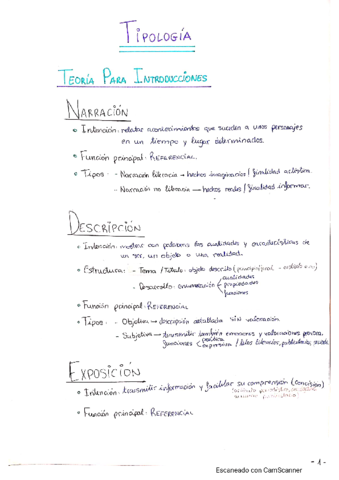 TIPOLOGÍA
TEORÍA PARA INTRODUCCIONES
NARRACIÓN
• Intención: relatar acontecimientos que suceden a unos personajes
en un tiempo y lugar determinados.
• Función principal: REFERENCIAL.
• Tipos: - Narración literaria → hechos imaginarios / finalidad artística.
- Narración no literaria → hechos reales / finalidad informar.
DESCRIPCIÓN
• Intención: mostrar con palabras las cualidades y características de
un ser, un objeto o una realidad.
• Estructura: - Tema / Título: objeto descrito (principio/final
- Desarrollo: enumeración cualidades
propiedades
funciones
• Función principal: REFERENCIAL
• Tipos: - Objetiva → descripción detallada SIN valoración
- Subjetiva → transmitir también emociones y valoraciones
funciones poética
expresiva / textos literarios, publicitarios,
EXPOSICIÓN
• Intención: transmitir información y facilitar su comprensión (concisión)
• Función principal: REFERENCIAL
- 1 -
Escaneado con CamScanner